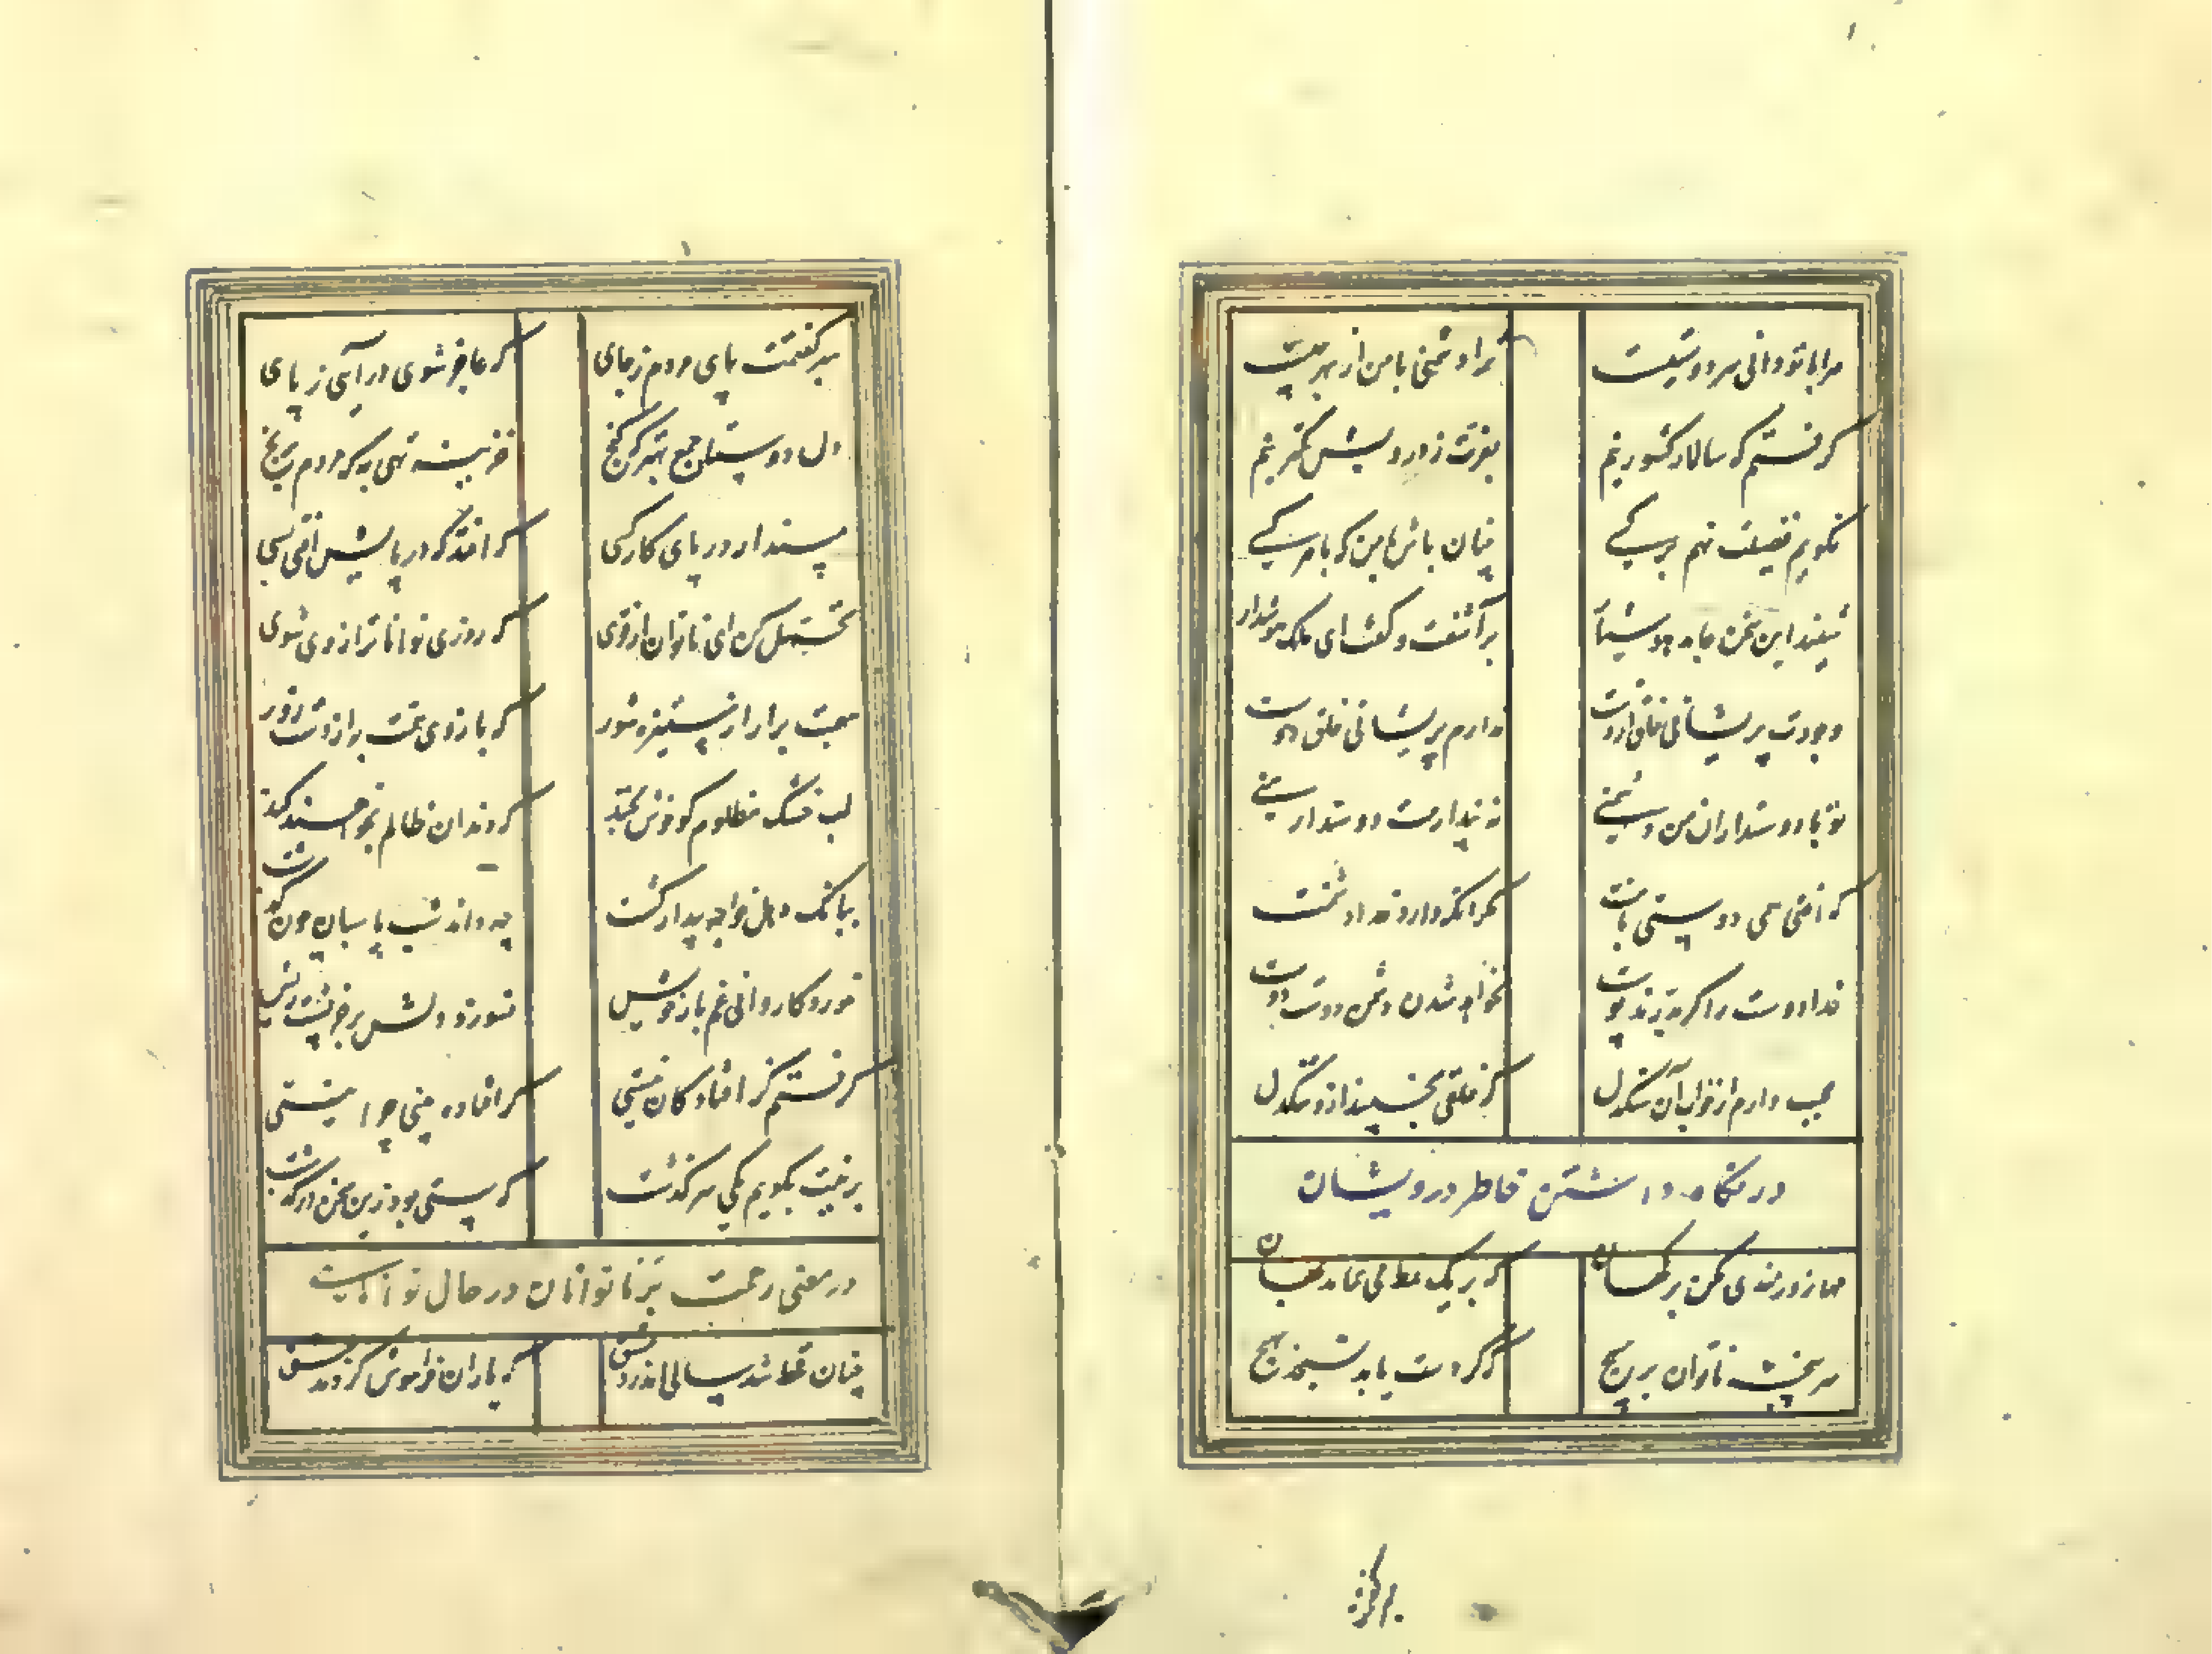 مرا با تو دانی سر دوستیست ترا دشمنی با من از بهر چیست
گرفتم که سالار کشور نیم بعزت ز درویش کمتر نیم
نگویم فضیلت نهم بر کسی چنان باش با من که با هر کسی
شنید این سخن عابد هوشیار برآشفت و گفت ای ملک هوشدار
وجودت پریشانی خلق ازوست ندارم پریشانی خلق دوست
تو با دوستداران من دشمنی نه پندارمت دوستدار منی
که افتی همی دوستی بامنت چو آنکه دارد خدا دشمنت
خدا دوست را گر بدرند پوست نخواهد شدن دشمن دوست دوست
عجب دارم از خواب آن سنگدل که خلقی بخسپند ازو تنگدل
در نگاه داشتن خاطر درویشان
مها زورمندی مکن بر کهان که بر یک نمط می نماند جهان
سر پنجه ناتوان بر مپیچ که گر دست یابد نسنجد بهیچ
برگفتمت
ببر گفتمت پای مردم ز جای که عاجز شوی در آیی ز پای
دل دوستان جمع بهتر که گنج خزینه تهی به که مردم برنج
مینداز در پای کار کسی که افتد که در پایش افتی بسی
تحمل کن ای ناتوان از قوی که روزی تواناتر از وی شوی
بهمت برآر از ستیزنده شور که بازوی همت به از دست زور
لب خشک مظلوم گو خوش بخند که دندان ظالم بخواهند کند
ببانگ دهل خواجه بیدار گشت چه داند شب پاسبان چون گذشت
خورد کاروانی غم بار خویش نسوزد دلش بر خر پشت ریش
گرفتم کز افتادگان نیستی که افتاده بینی چرا نیستی
برینت بگویم یکی سرگذشت که سستی بود زین سخن درگذشت
در معنی رحمت بر ناتوانان در حال توانایی
چنان قحط شد سالی اندر دمشق که یاران فراموش کردند عشق